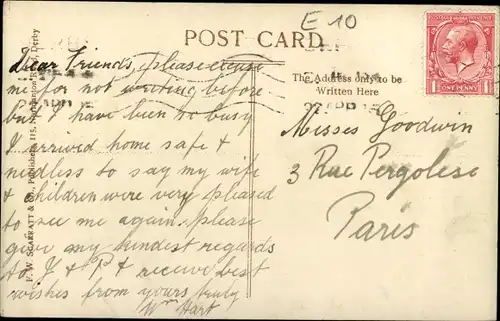 E 10
POST CARD
The Address only to be
Written Here
ONE PENNY
Dear Friends, please excuse
me for not writing before
but I have been so busy
I arrived home safe &
needless to say my wife
& children were very pleased
to see me again. please
give my kindest regards
to J & P, & receive best
wishes from yours truly
Wm Hart
Misses Goodwin
3 Rue Pergolese
Paris
F. W. SCARRATT & Co., Publishers, 115, Derby